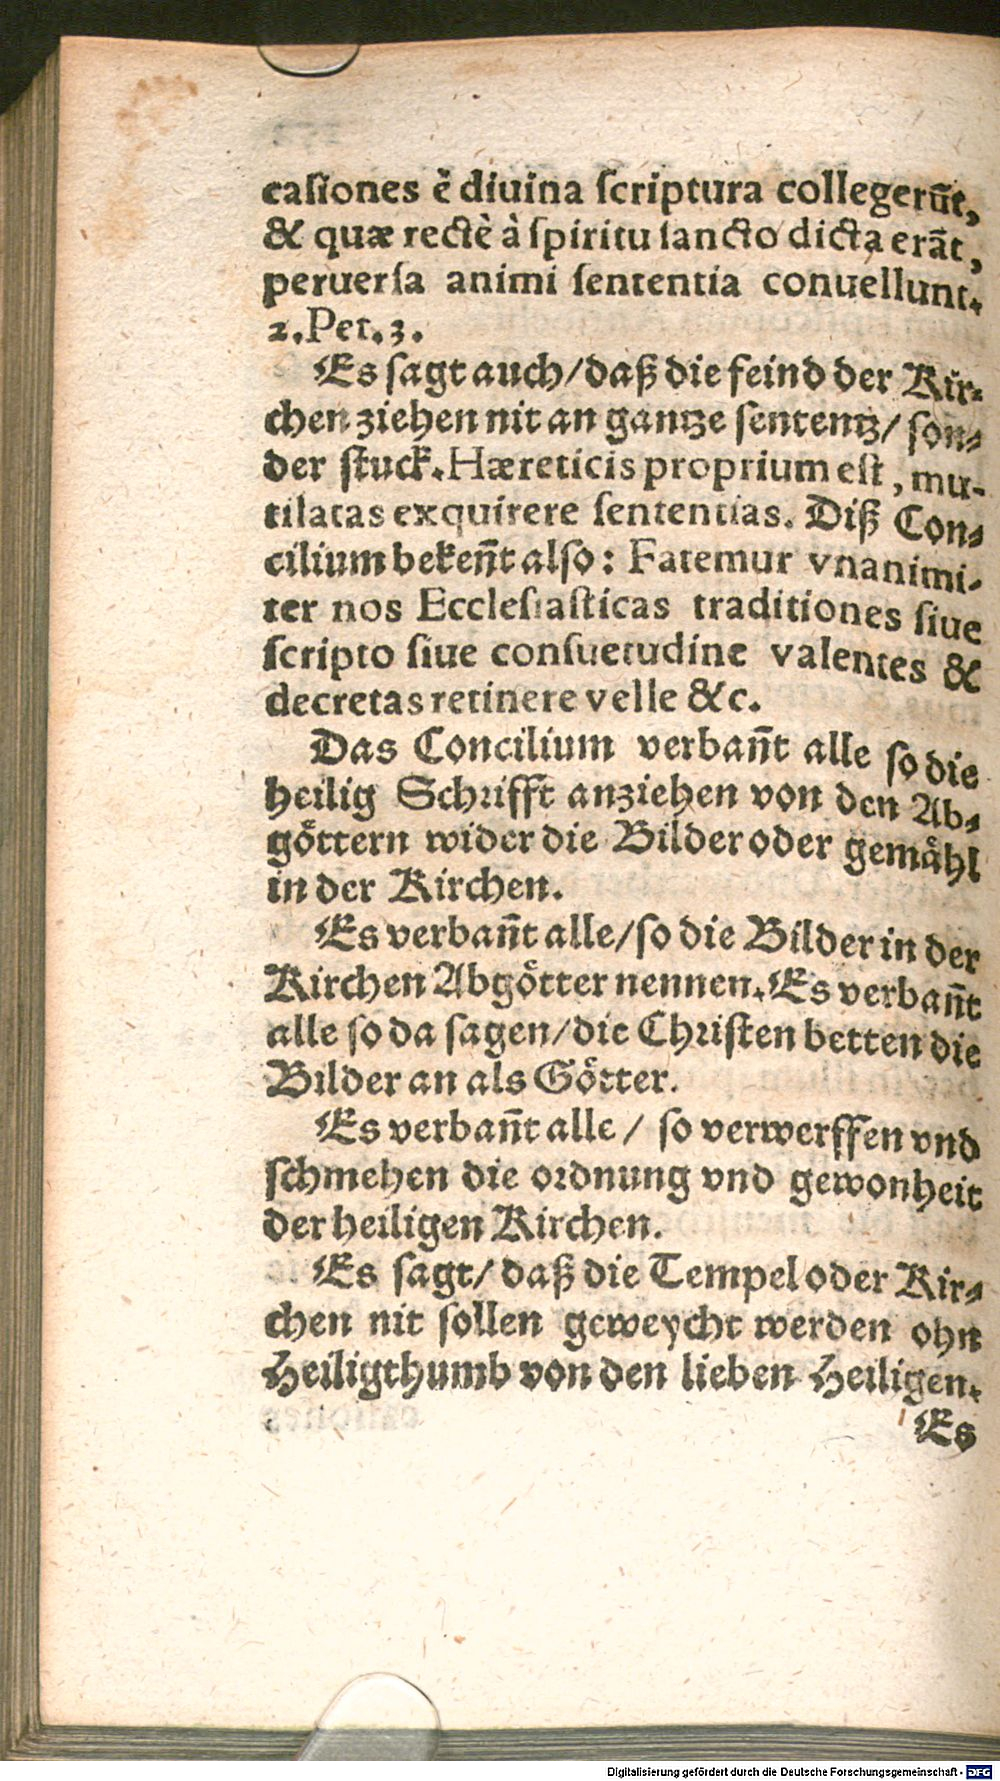 casiones è diuina scriptura collegerūt,
& quæ rectè à spiritu sancto dicta erāt,
peruersa animi sententia conuellunt.
2. Pet. 3.
Es sagt auch/ daß die feind der Kir-
chen ziehen nit an gantze sententz/ son-
der stuck. Hæreticis proprium est, mu-
tilatas exquirere sententias. Diß Con-
cilium bekeñt also: Fatemur vnanimi-
ter nos Ecclesiasticas traditiones siue
scripto siue consuetudine valentes &
decretas retinere velle &c.
Das Concilium verbañt alle so die
heilig Schrifft anziehen von den Ab-
göttern wider die Bilder oder gemähl
in der Kirchen.
Es verbañt alle/ so die Bilder in der
Kirchen Abgötter nennen. Es verbañt
alle so da sagen/ die Christen betten die
Bilder an als Götter.
Es verbañt alle/ so verwerffen vnd
schmehen die ordnung vnd gewonheit
der heiligen Kirchen.
Es sagt/ daß die Tempel oder Kir-
chen nit sollen geweycht werden ohn
Heiligthumb von den lieben Heiligen.
Es
Digitalisierung gefördert durch die Deutsche Forschungsgemeinschaft - DFG